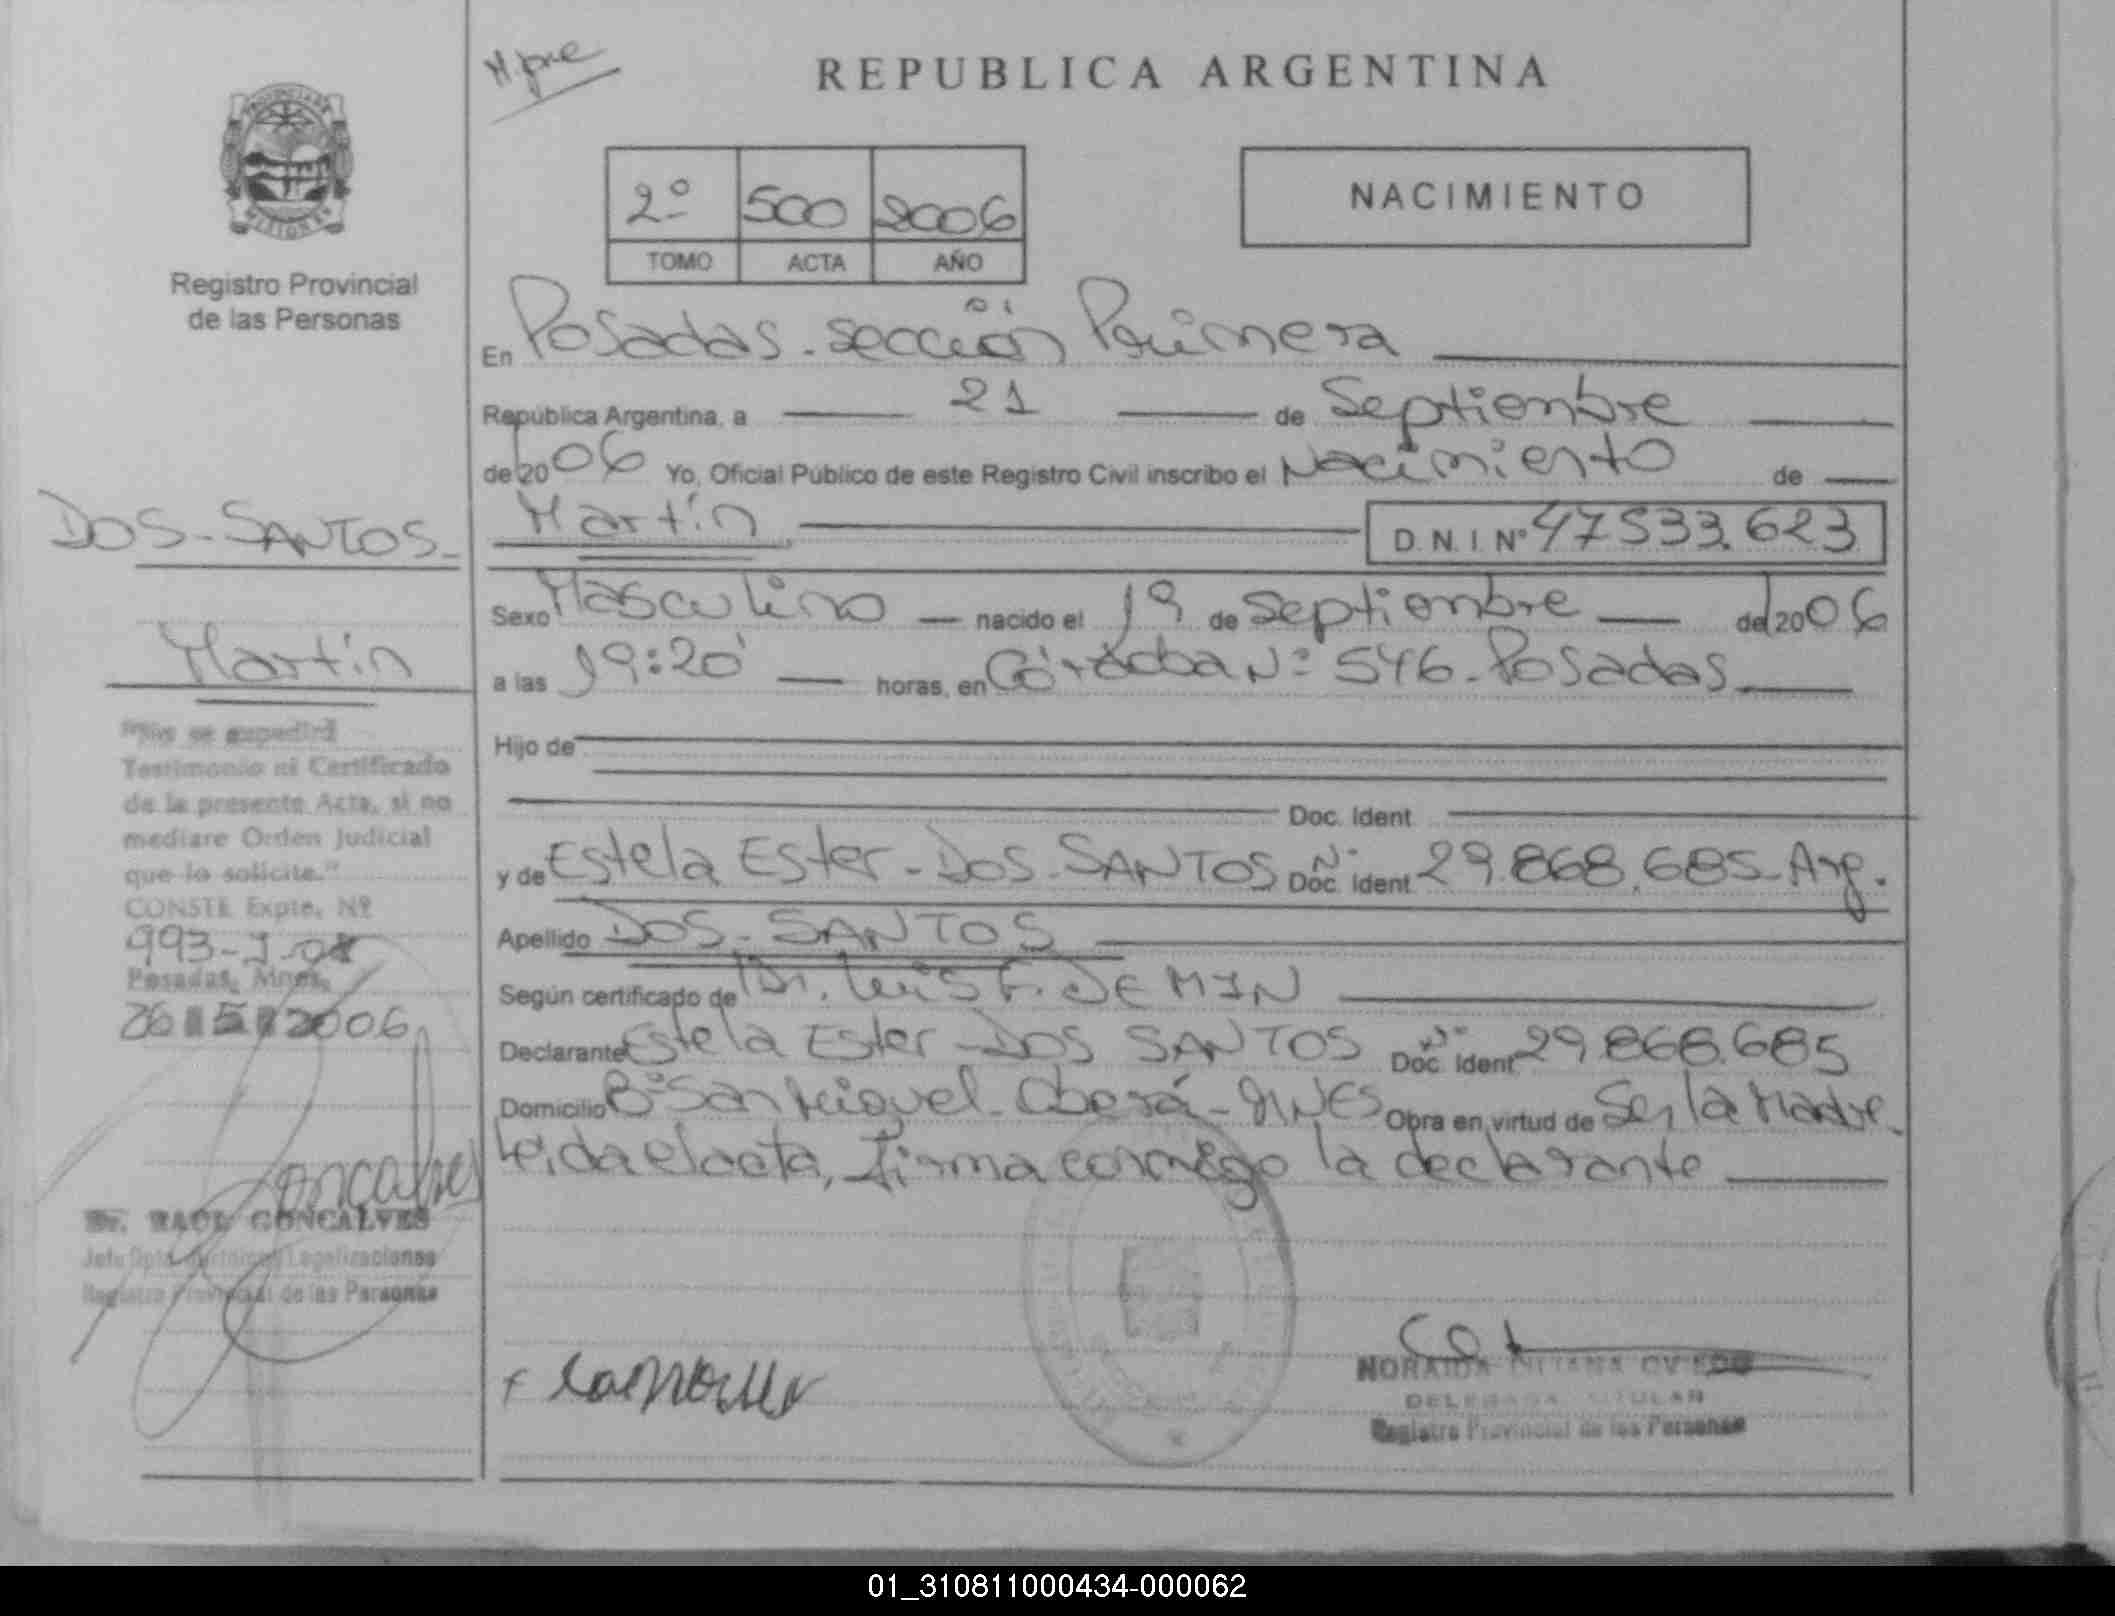 M.pne
REPUBLICA ARGENTINA
2º 500 2006
TOMO ACTA AÑO
NACIMIENTO
Registro Provincial
de las Personas
En Posadas - sección Primera
República Argentina, a 21 de Septiembre
de 2006 Yo, Oficial Público de este Registro Civil inscribo el Nacimiento de
Martín D.N.I. Nº 47533.623
Sexo Masculino nacido el 19 de Septiembre de 2006
a las 19:20 horas, en Córdoba Nº 546. Posadas
Hijo de
Doc. Ident
y de Estela Ester - DOS - SANTOS Nº Doc. Ident 29.868.685 - Arg.
Apellido DOS - SANTOS
Según certificado de Dr. Luis F. DEMIN
Declarante Estela Ester - DOS SANTOS Nº Doc. Ident 29.868.685
Domicilio Bº San Miguel - Oberá - MNES Obra en virtud de Ser la Madre.
Leída el acta, firma conmigo la declarante
DOS - SANTOS -
Martín
"No se expedirá
Testimonio ni Certificado
de la presente Acta, si no
mediare Orden Judicial
que lo solicite."
CONSTE Expte. Nº
993-J-0
Posadas, Mnes,
26 2006
Goncalves
Dr. RAUL GONCALVES
Jefe Dpto. Legalizaciones
Registro Provincial de las Personas
NORAIDA LILIANA OVIEDO
DELEGADA TITULAR
Registro Provincial de las Personas
01_310811000434-000062